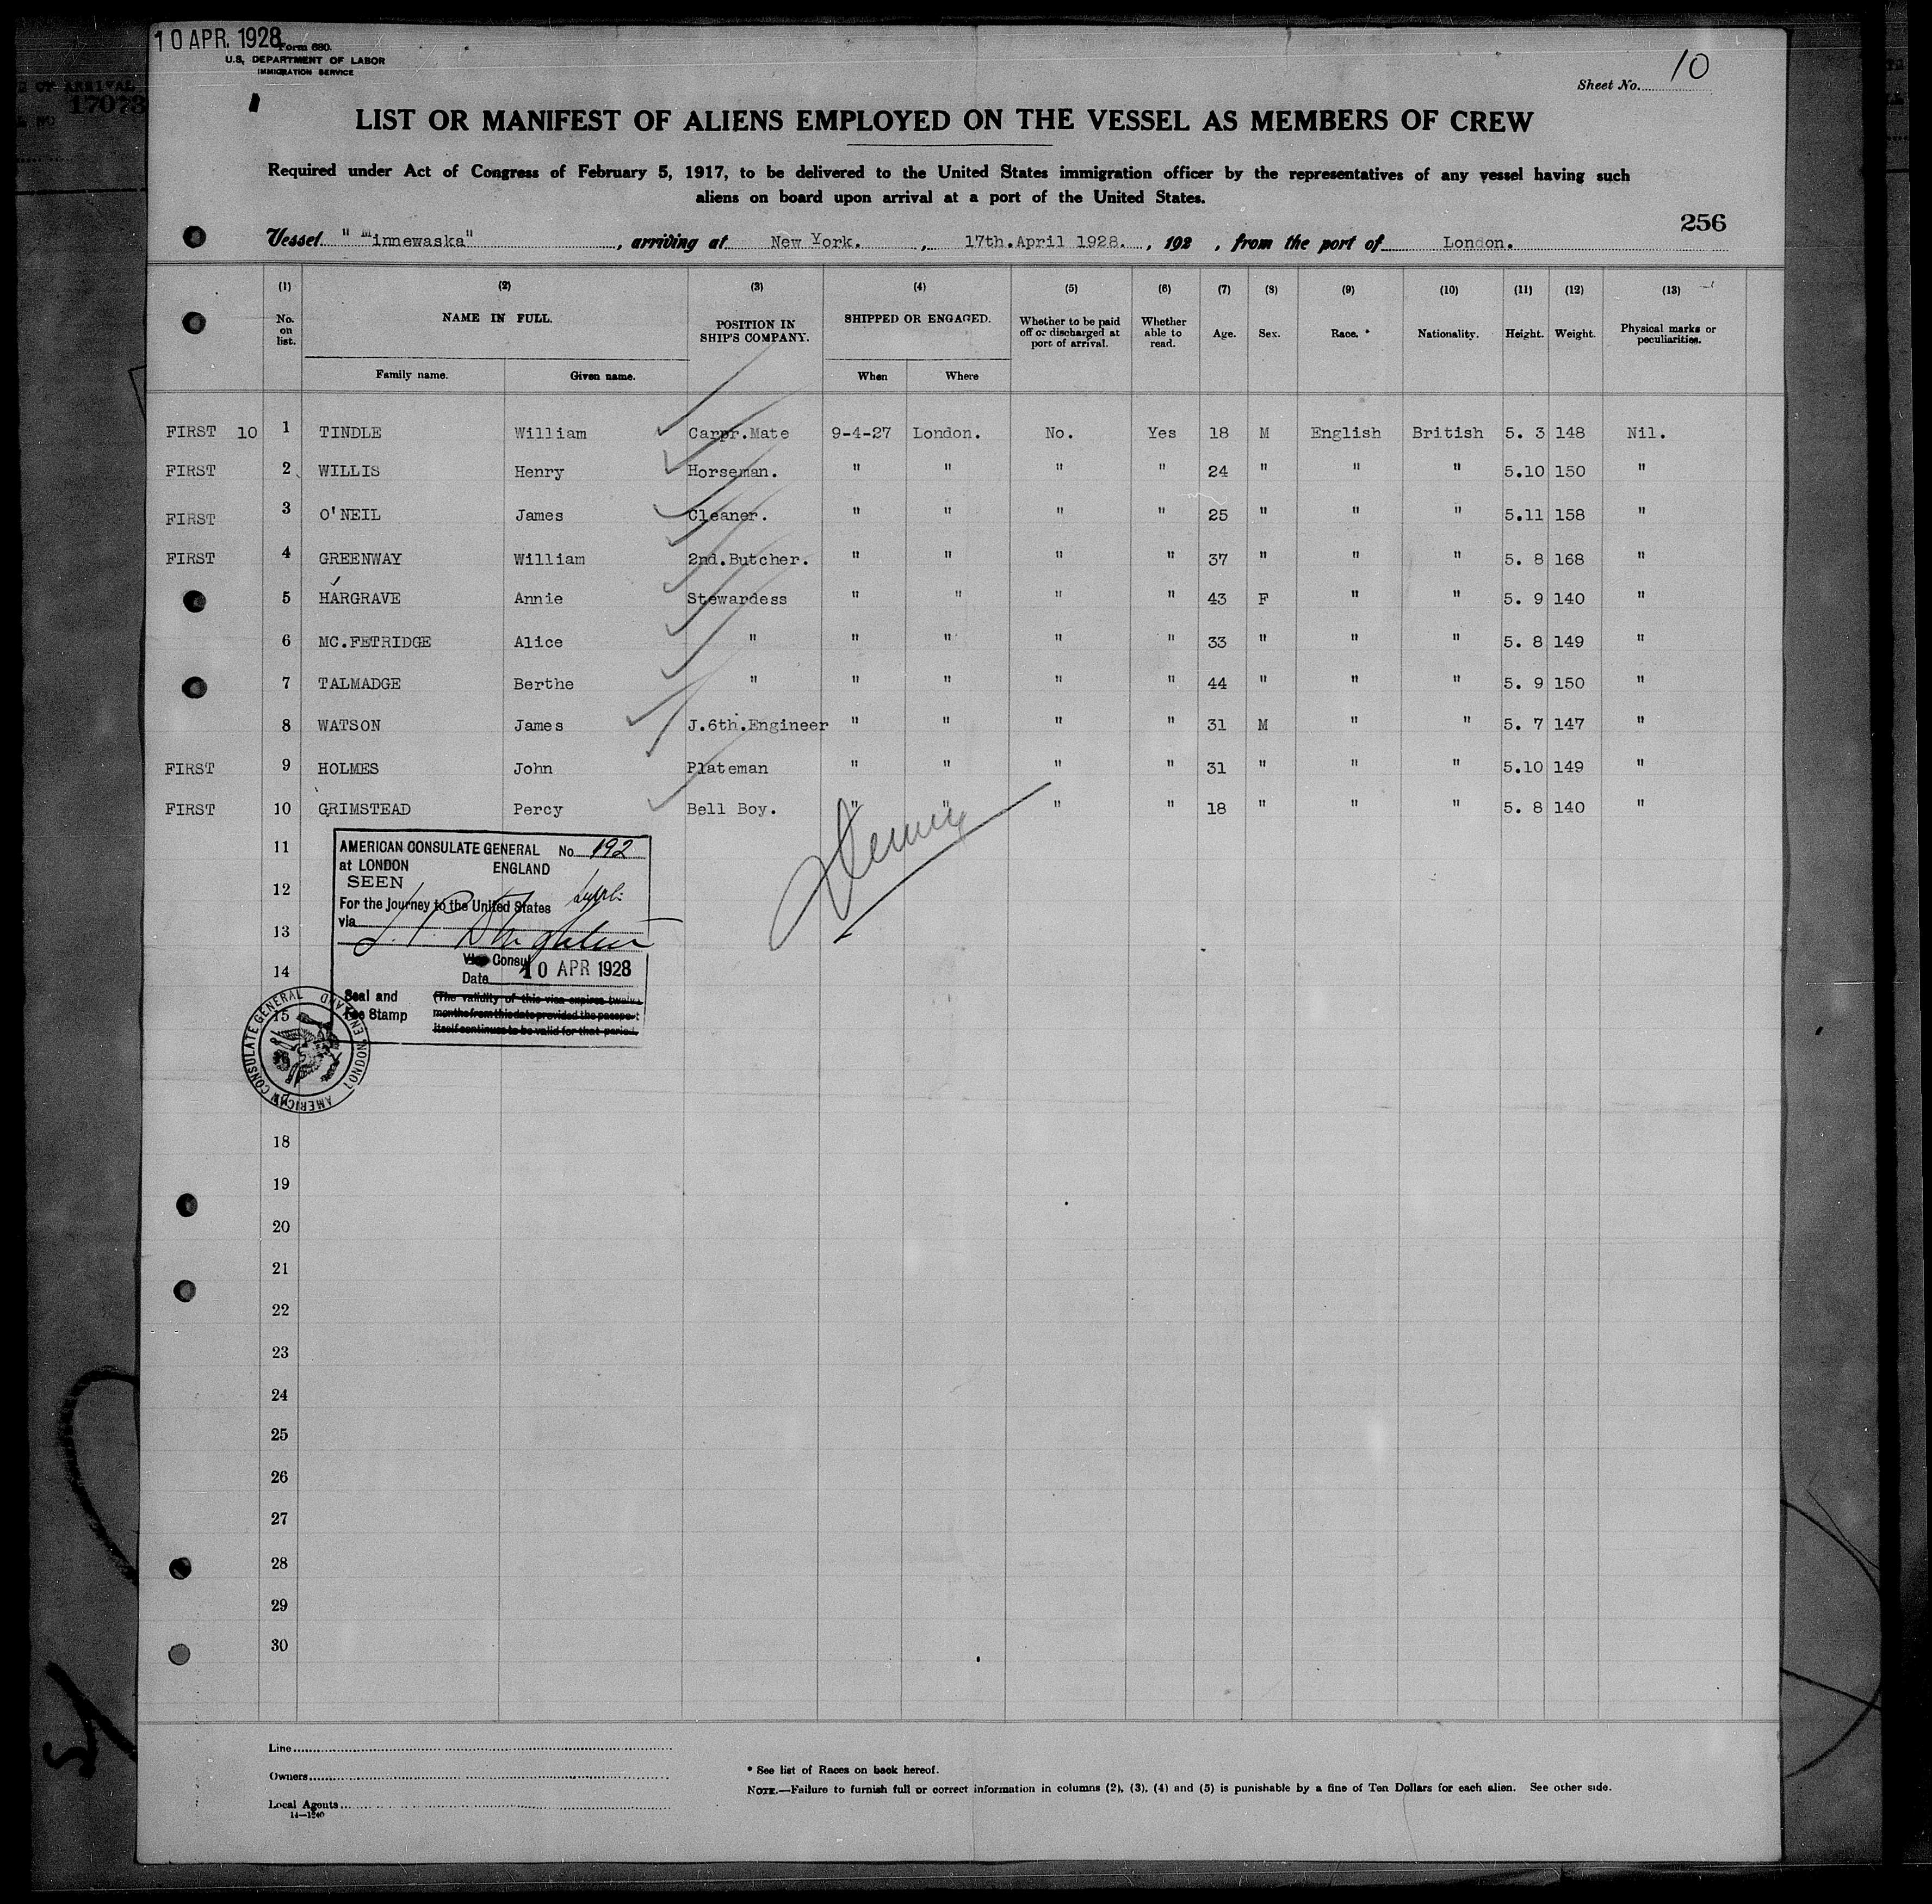 10 APR. 1928
Form 680.
U.S. DEPARTMENT OF LABOR
IMMIGRATION SERVICE
Sheet No. 10
17073
LIST OR MANIFEST OF ALIENS EMPLOYED ON THE VESSEL AS MEMBERS OF CREW
Required under Act of Congress of February 5, 1917, to be delivered to the United States immigration officer by the representatives of any vessel having such
aliens on board upon arrival at a port of the United States.
256
Vessel " Minnewaska" , arriving at New York. , 17th.April 1928. , 192 , from the port of London.
(1) (2) (3) (4) (5) (6) (7) (8) (9) (10) (11) (12) (13)
No. on list. NAME IN FULL. POSITION IN SHIP'S COMPANY. SHIPPED OR ENGAGED. Whether to be paid off or discharged at port of arrival. Whether able to read. Age. Sex. Race. * Nationality. Height. Weight. Physical marks or peculiarities.
Family name. Given name. When Where
FIRST 10 1 TINDLE William Carpr.Mate 9-4-27 London. No. Yes 18 M English British 5. 3 148 Nil.
FIRST 2 WILLIS Henry Horseman. " " " " 24 " " " 5.10 150 "
FIRST 3 O'NEIL James Cleaner. " " " " 25 " " " 5.11 158 "
FIRST 4 GREENWAY William 2nd.Butcher. " " " " 37 " " " 5. 8 168 "
5 HARGRAVE Annie Stewardess " " " " 43 F " " 5. 9 140 "
6 MC.FETRIDGE Alice " " " " " 33 " " " 5. 8 149 "
7 TALMADGE Berthe " " " " " 44 " " " 5. 9 150 "
8 WATSON James J.6th.Engineer " " " " 31 M " " 5. 7 147 "
FIRST 9 HOLMES John Plateman " " " " 31 " " " 5.10 149 "
FIRST 10 GRIMSTEAD Percy Bell Boy. " " " " 18 " " " 5. 8 140 "
11
12
13
14
15
AMERICAN CONSULATE GENERAL No 192
at LONDON ENGLAND
SEEN
For the Journey to the United States
via
Vice Consul
Date 10 APR 1928
Seal and
Fee Stamp
(The validity of this visa expires twelve
months from this date provided the passport
itself continues to be valid for that period.
AMERICAN CONSULATE GENERAL LONDON, ENGLAND
18
19
20
21
22
23
24
25
26
27
28
29
30
Line
Owners
Local Agents
14—1240
* See list of Races on back hereof.
NOTE.—Failure to furnish full or correct information in columns (2), (3), (4) and (5) is punishable by a fine of Ten Dollars for each alien. See other side.